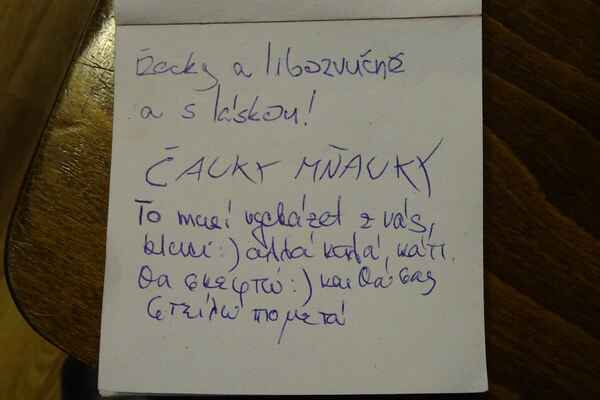 Řecky a libozvučně
a s láskou!
ČAUKY MŇAUKY
To musí vycházet z vás,
kluci :) αλλά καλά, κάτι
θα σκεφτώ :) και θά σας
στείλω πο μετά